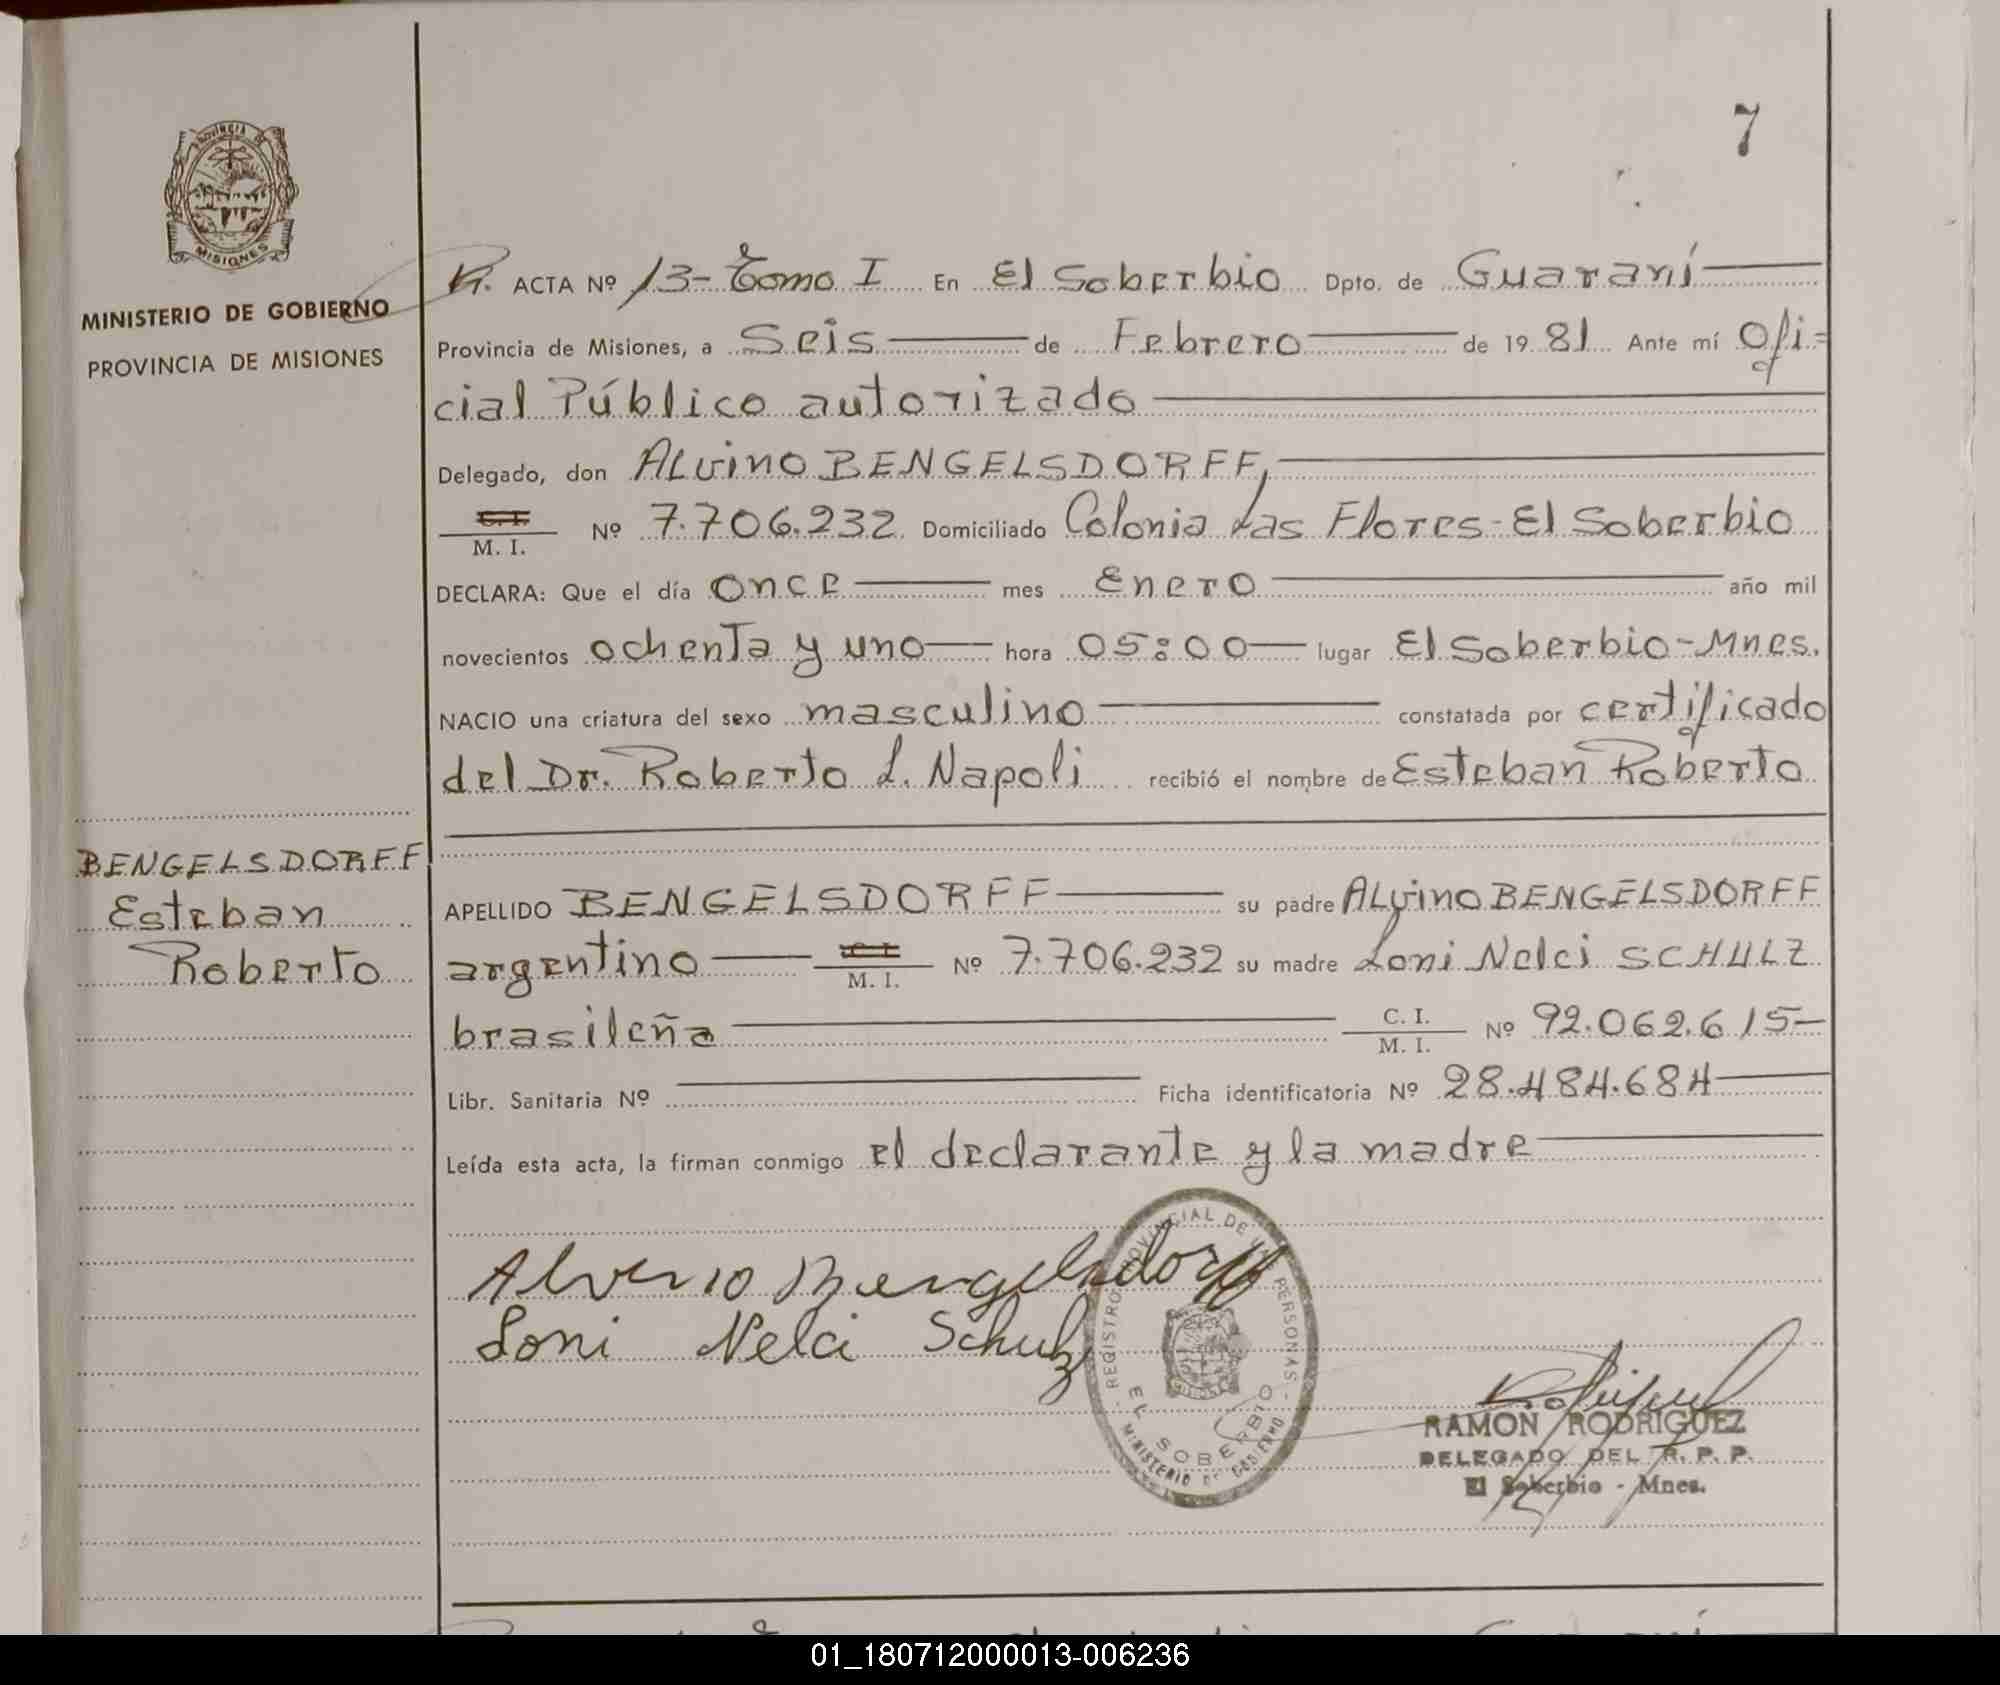 7
PROVINCIA DE
MISIONES
MINISTERIO DE GOBIERNO
PROVINCIA DE MISIONES
R. ACTA Nº 13- Tomo I En El Soberbio Dpto. de Guaraní
Provincia de Misiones, a Seis de Febrero de 19 81 Ante mí Ofi=
cial Público autorizado
Delegado, don ALvino BENGELSDORFF,
C. I.
M. I. Nº 7.706.232 Domiciliado Colonia Las Flores-El Soberbio
DECLARA: Que el día once mes Enero año mil
novecientos ochenta y uno hora 05:00 lugar El Soberbio-Mnes.
NACIO una criatura del sexo masculino constatada por certificado
del Dr. Roberto L. Napoli recibió el nombre de Esteban Roberto
BENGELSDORFF
Esteban
Roberto
APELLIDO BENGELSDORFF su padre ALvino BENGELSDORFF
argentino C. I.
M. I. Nº 7.706.232 su madre Loni Nelci SCHULZ
brasileña C. I.
M. I. Nº 92.062.615-
Libr. Sanitaria Nº Ficha identificatoria Nº 28.484.684
Leída esta acta, la firman conmigo el declarante y la madre
Alvino Bengelsdorff
Loni Nelci Schulz
REGISTRO PROVINCIAL DE LAS PERSONAS -
EL SOBERBIO
MINISTERIO DE GOBIERNO
MISIONES
RAMON RODRIGUEZ
DELEGADO DEL R. P. P.
El Soberbio - Mnes.
01_180712000013-006236